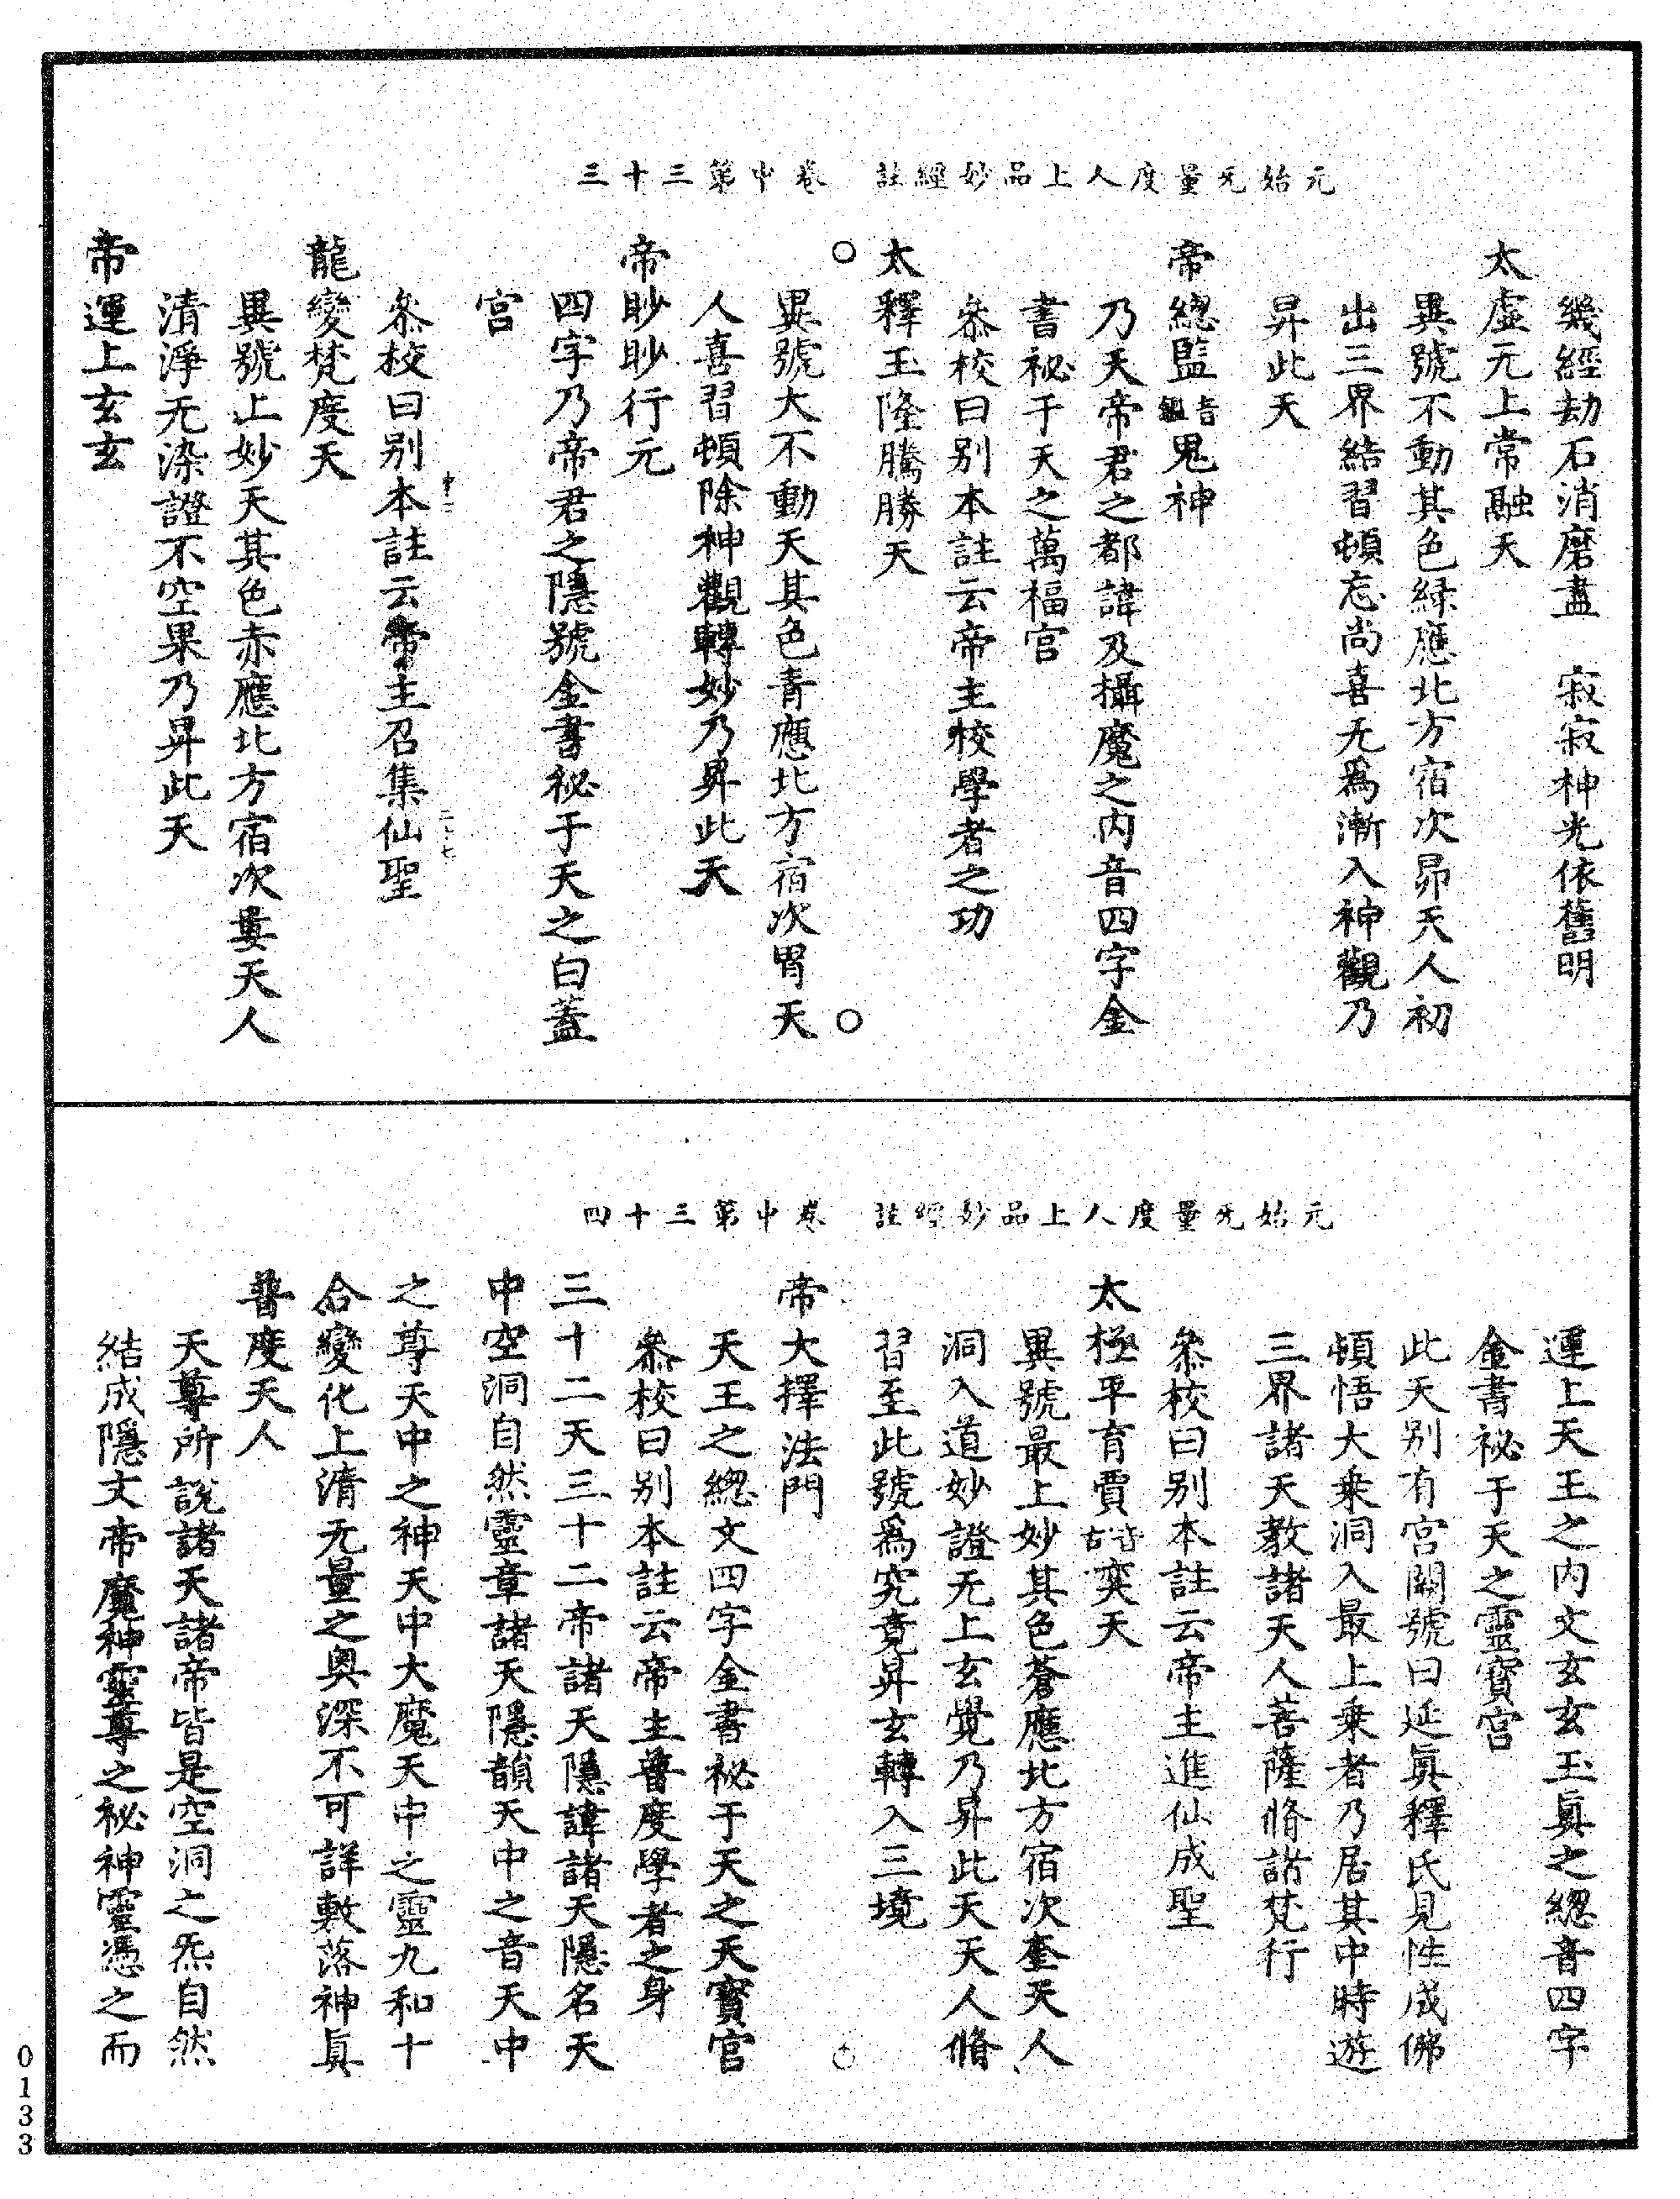 元始无量度人上品妙經註　卷中第三十三
幾經劫石消磨盡　寂寂神光依舊明
太虛无上常融天
異號不動其色綠應北方宿次昴天人初
出三界結習頓忘尚喜无爲漸入神觀乃
昇此天
帝總監音鑑鬼神
乃天帝君之都諱及攝魔之內音四字金
書祕于天之萬福官
叅校曰別本註云帝主校學者之功
太釋玉隆騰勝天
異號大不動天其色青應北方宿次胃天
人喜習頓除神觀轉妙乃昇此天
帝眇眇行元
四字乃帝君之隱號金書秘于天之白蓋
宮
叅校曰別本註云帝主召集仙聖
龍變梵度天
異號上妙天其色赤應北方宿次婁天人
清淨无染證不空果乃昇此天
帝運上玄玄
元始无量度人上品妙經註　卷中第三十四
運上天王之內文玄玄玉眞之緫音四字
金書祕于天之靈寶宮
此天別有宮闕號曰延眞釋氏見性成佛
頓悟大乗洞入最上乗者乃居其中時遊
三界諸天教諸天人菩薩脩諸梵行
叅校曰別本註云帝主進仙成聖
太極平育賈音古奕天
異號最上妙其色蒼應北方宿次奎天人
洞入道妙證无上玄覺乃昇此天天人脩
習至此號爲究竟昇玄轉入三境
帝大擇法門
天王之緫文四字金書祕于天之天寳官
叅校曰別本註云帝主普度學者之身
三十二天三十二帝諸天隱諱諸天隱名天
中空洞自然靈章諸天隱韻天中之音天中
之尊天中之神天中大魔天中之靈九和十
合變化上清无量之奧深不可詳敷落神眞
普度天人
天尊所說諸天諸帝皆是空洞之炁自然
結成隱文帝魔神靈尊之祕神靈憑之而
0133